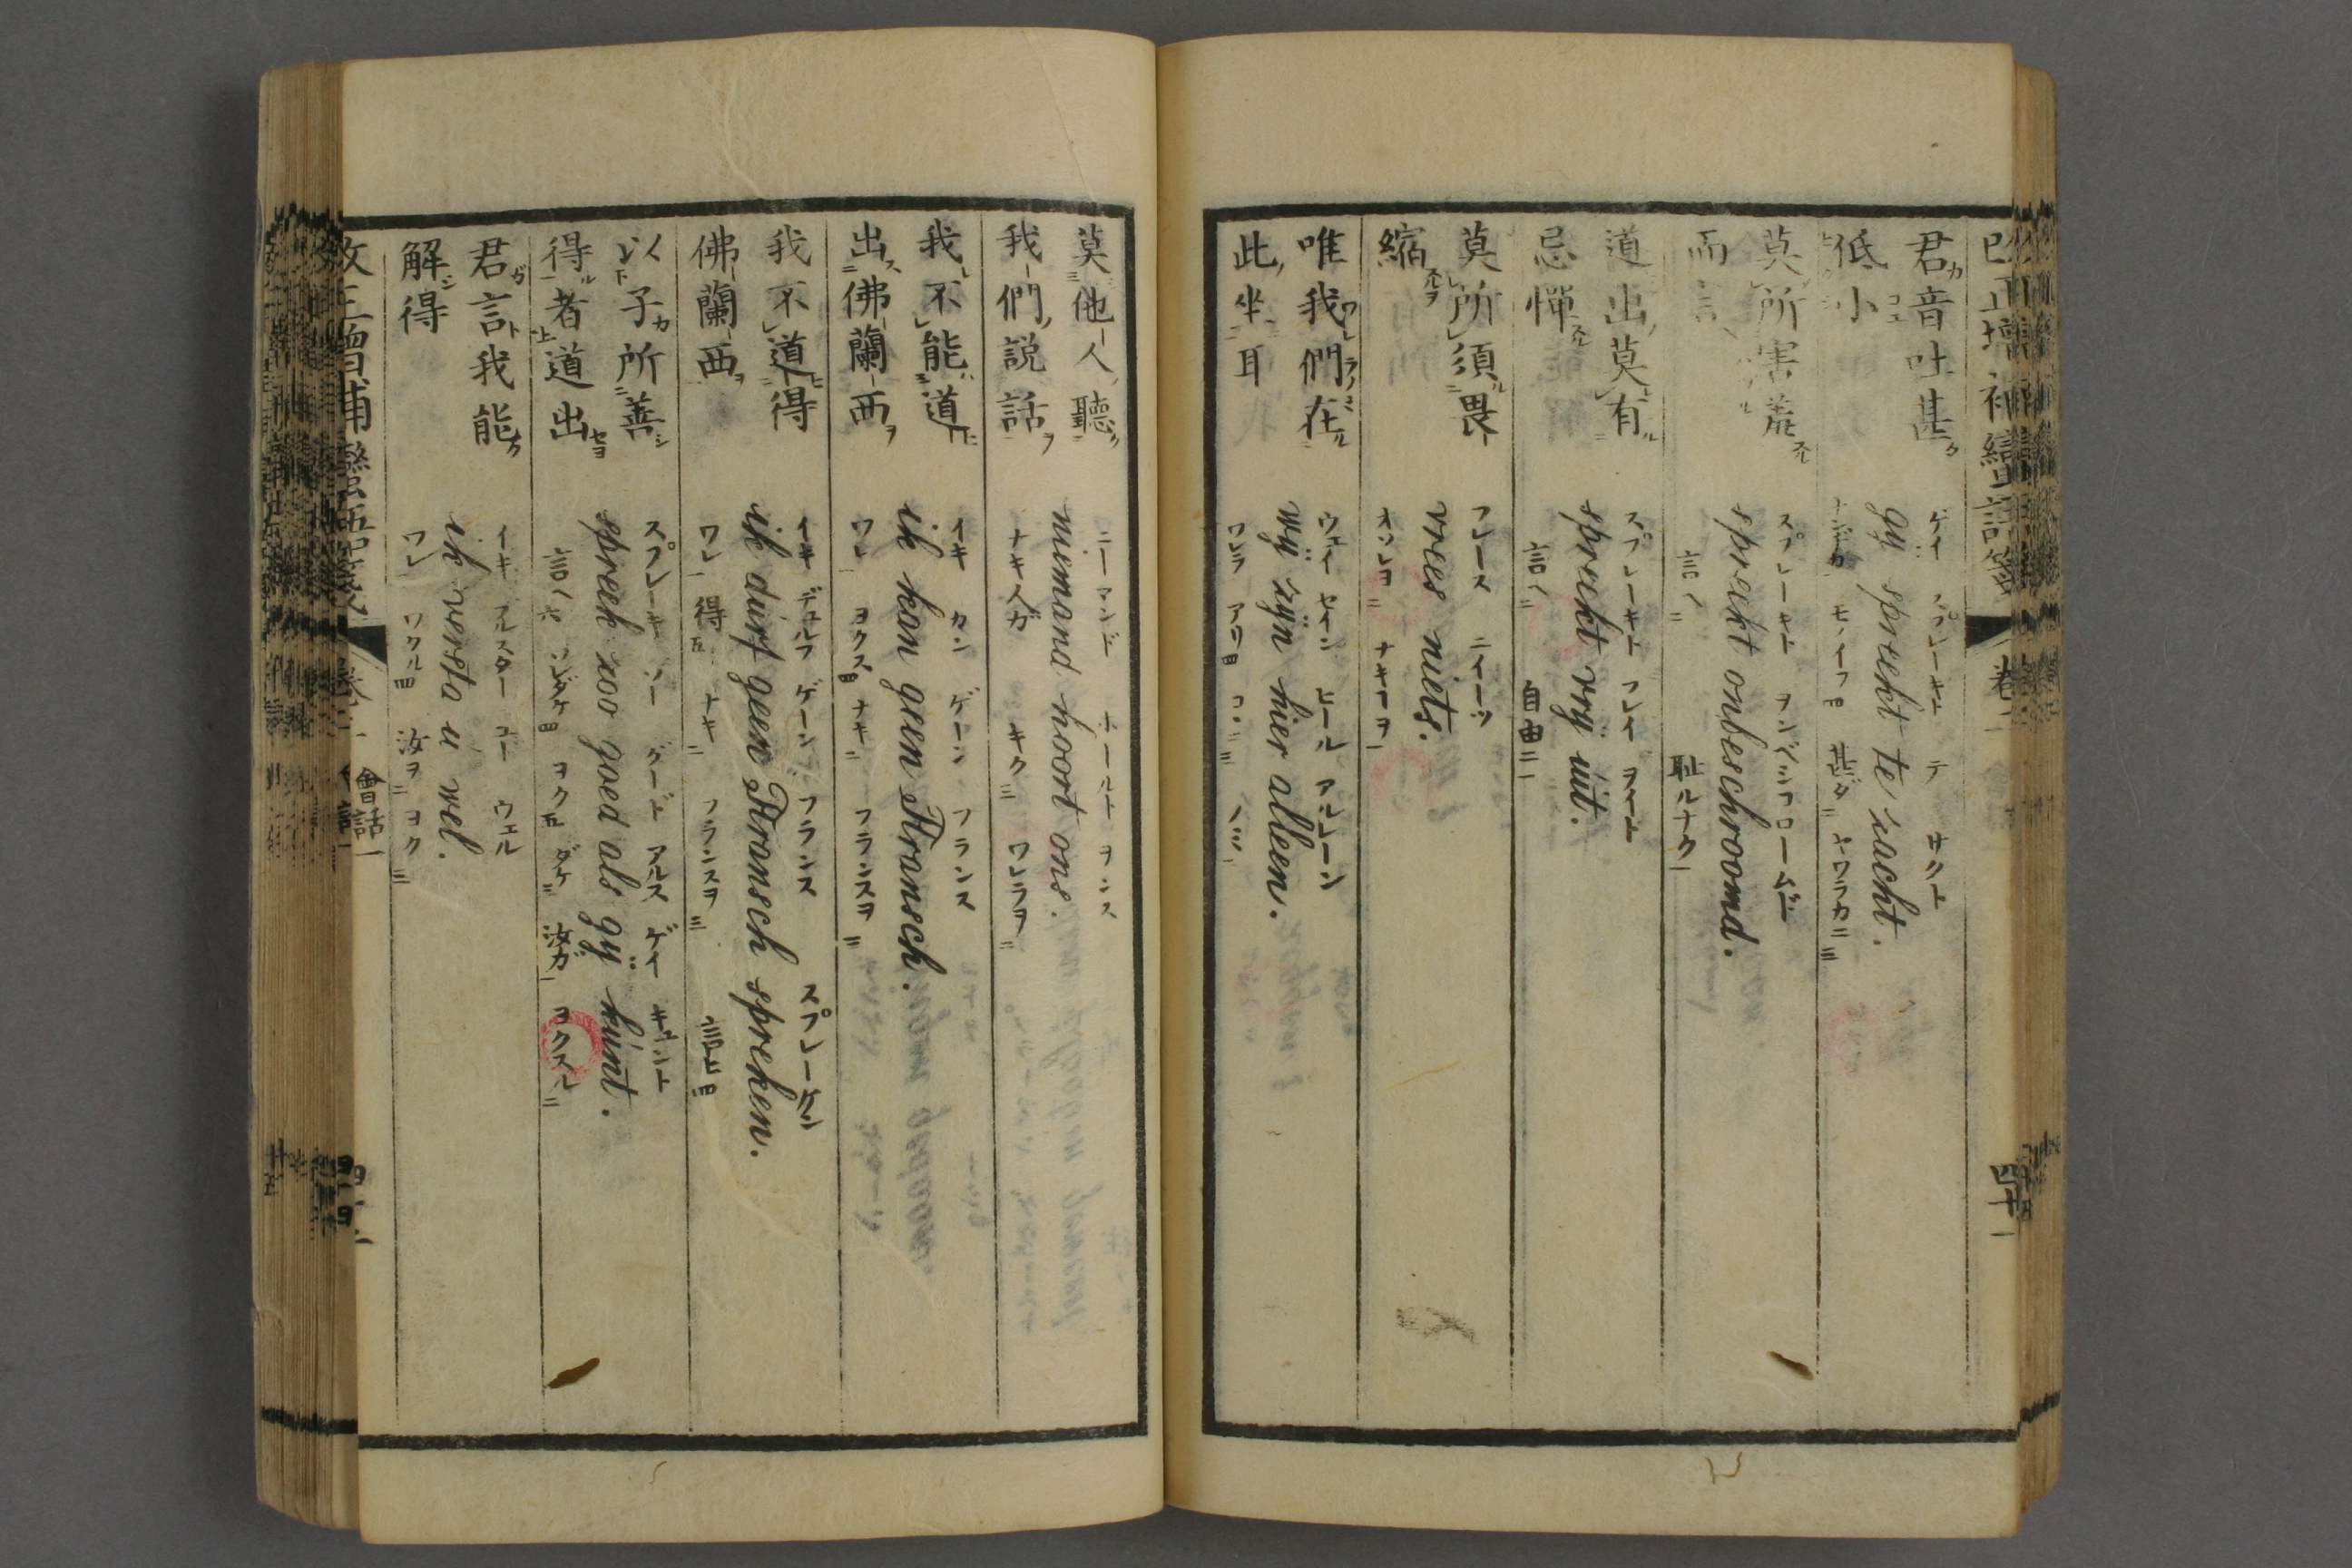 改正增補蠻語箋
卷二
四十一
君音吐甚
低小
ゲイ スプレーキト テ サクト
gÿ spreekt te zacht.
ナンヂガ一 モノイフ四 甚ダ二 ヤワラカニ三
莫所害羞
而言
スプレーキト ヲンベシフロームド
spreekt onbeschroomd.
言ヘ二 耻ルナク一
道出莫有
忌憚
スプレーキト フレイ ヲイト
spreekt vrÿ uit.
言ヘ二 自由ニ一
莫所須畏
縮
フレース ニイーツ
vrees niets.
オソレヨ二 ナキヿヲ一
唯我們在
此坐耳
ウェイ セイン ヒール アルレーン
wÿ zÿn hier alleen.
ワレラ アリ四 コヽニ三 ノミ二
莫他人聽
我們説話
ニーマンド ホールト ヲンス
niemand hoort ons.
ナキ人ガ一 キク三 ワレラヲ二
我不能道
出佛蘭西
イキ カン ゲーン フランス
ik kan geen Fransch.
ワレ一 ヨクス四 ナキ二 フランスヲ三
我不道得
佛蘭西
イキ デュルフ ゲーン フランス スプレーケン
ik durf geen Fransch spreken.
ワレ一 得五 ナキ二 フランスヲ三 言ヿ四
以子所善
得者道出
スプレーキ ソー グード アルス ゲイ キュント
spreek zoo goed als gÿ kunt.
言ヘ六 ソレダケ四 ヨク五 ダケ三 汝ガ一 ヨクスル二
君言我能
解得
イキ フルスター ユー ウェル
ik versta u wel.
ワレ一 ワクル四 汝ヲ二 ヨク三
會話